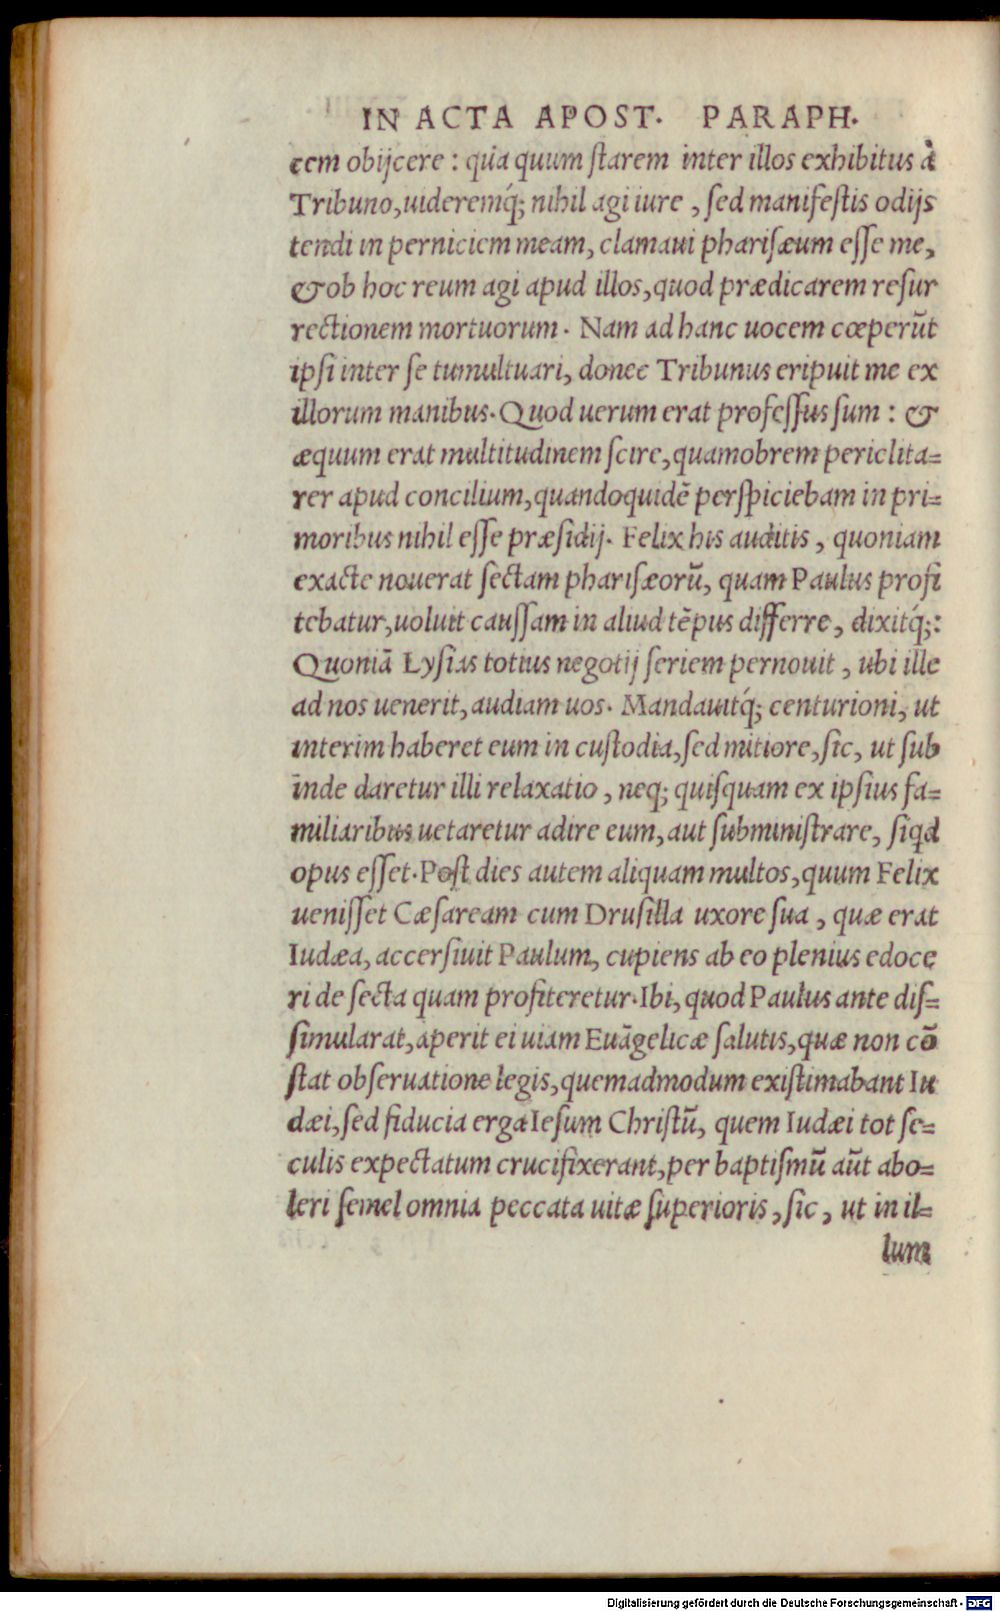 IN ACTA APOST. PARAPH.
cem obijcere : qua quum ſtarem inter illos exhibitus à
Tribuno, uideremq́; nihil agi iure , ſed manifeſtis odijs
tendi in perniciem meam, clamaui phariſæum eſſe me,
& ob hoc reum agi apud illos, quod prædicarem reſur
rectionem mortuorum. Nam ad hanc uocem cœperūt
ipſi inter ſe tumultuari, donec Tribunus eripuit me ex
illorum manibus. Quod uerum erat profeſſus ſum : &
æquum erat multitudinem ſcire, quamobrem periclita=
rer apud concilium, quandoquidē perſpiciebam in pri=
moribus nihil eſſe præſidij. Felix his auditis , quoniam
exacte nouerat ſectam phariſæorū, quam Paulus profi
tebatur, uoluit cauſſam in aliud tēpus differre, dixitq́;:
Quoniā Lyſias totius negotij ſeriem pernouit , ubi ille
ad nos uenerit, audiam uos. Mandauitq́; centurioni, ut
interim haberet eum in cuſtodia, ſed mitiore, ſic, ut ſub
inde daretur illi relaxatio , neq; quiſquam ex ipſius fa=
miliaribus uetaretur adire eum, aut ſubminiſtrare, ſiqd
opus eſſet. Poſt dies autem aliquam multos, quum Felix
ueniſſet Cæſaream cum Druſilla uxore ſua , quæ erat
Iudæa, accerſiuit Paulum, cupiens ab eo plenius edoce
ri de ſecta quam profiteretur. Ibi, quod Paulus ante diſ=
ſimularat, aperit ei uiam Euāgelicæ ſalutis, quæ non cō
ſtat obſeruatione legis, quemadmodum exiſtimabant Iu
dæi, ſed fiducia erga Ieſum Chriſtū, quem Iudæi tot ſe=
culis expectatum crucifixerant, per baptiſmū aūt abo=
leri ſemel omnia peccata uitæ ſuperioris , ſic , ut in il=
lum
Digitalisierung gefördert durch die Deutsche Forschungsgemeinschaft - DFG